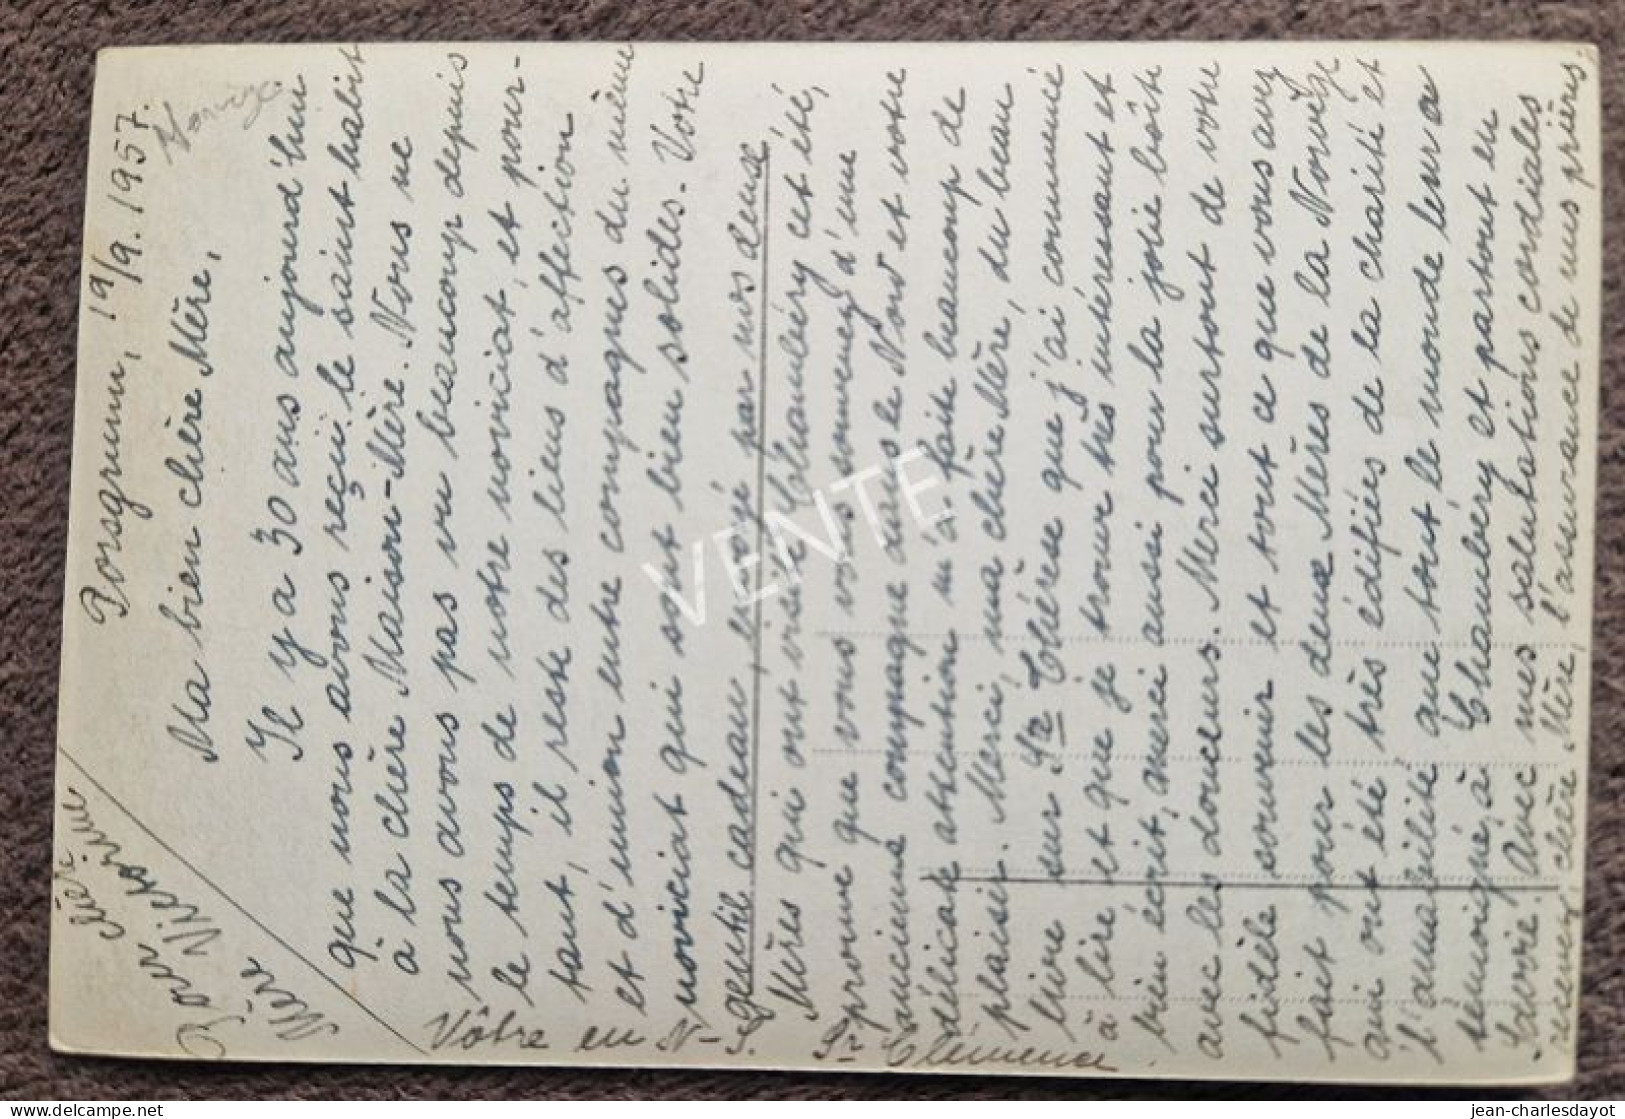 Porsgrunn, 19/9.1957.
Norvège
Pour Chère
Mère Victorine
Ma bien chère Mère,
Il y a 30 ans aujourd'hui
que nous avons reçu le saint habit
à la chère Maison-Mère. Nous ne
nous avons pas vu beaucoup depuis
le temps de notre noviciat, et pour-
tant, il reste des liens d'affection
et d'union entre compagnes du même
noviciat qui sont bien solides. Votre
gentil cadeau, envoyé par nos deux
Mères qui ont visité Chambéry cet été,
prouve que vous vous souvenez d'une
ancienne compagne dans le Nord et votre
délicate attention m'a faite beaucoup de
plaisir. Merci, ma chère Mère, du beau
livre sur Ste Thérèse que j'ai commencé
à lire et que je trouve très intéressant et
bien écrit, merci aussi pour la jolie boîte
avec les douceurs. Merci surtout de votre
fidèle souvenir et tout ce que vous avez
fait pour les deux Mères de la Norvège
qui ont été très édifiées de la charité et
l'amabilité que tout le monde leur a
témoigné, à Chambéry et partout en
Savoie. Avec mes salutations cordiales
recevez, chère Mère, l'assurance de mes prières.
Vôtre en N-S. Sr Clémence.
VENTE
jean-charlesdayot